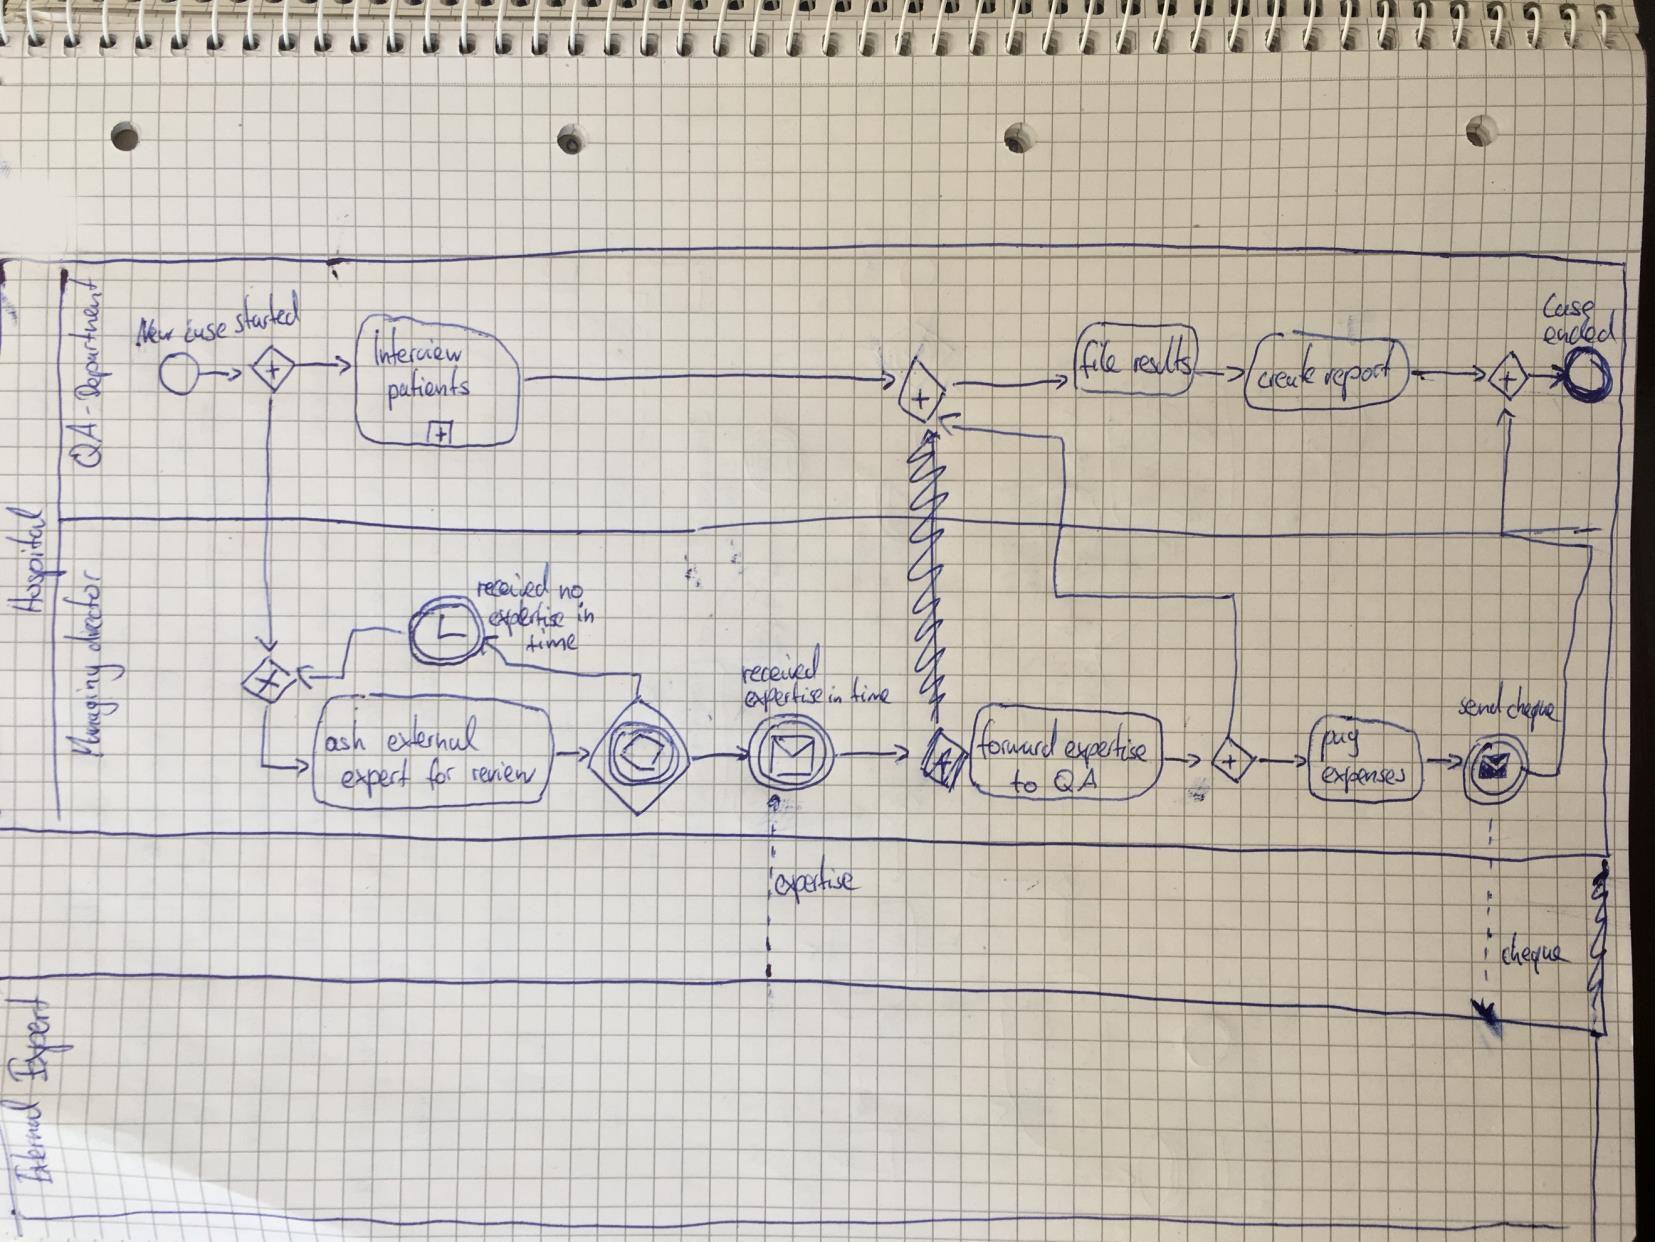 Hospital
QA-Department
New case started
Interview
patients
file results
create report
Case
ended
Managing director
received no
expertise in
time
ask external
expert for review
received
expertise in time
forward expertise
to QA
pay
expenses
send cheque
expertise
cheque
External Expert